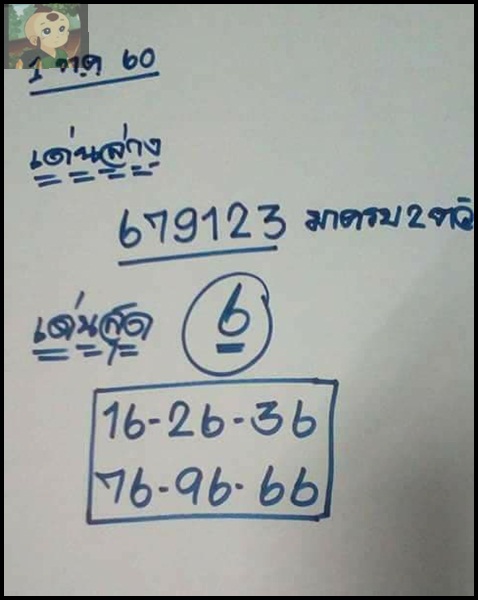 1 กค 60
เด่นล่าง
679123 มาครบ 2 ตัว
เด่นสุด 6
16-26-36
76-96-66